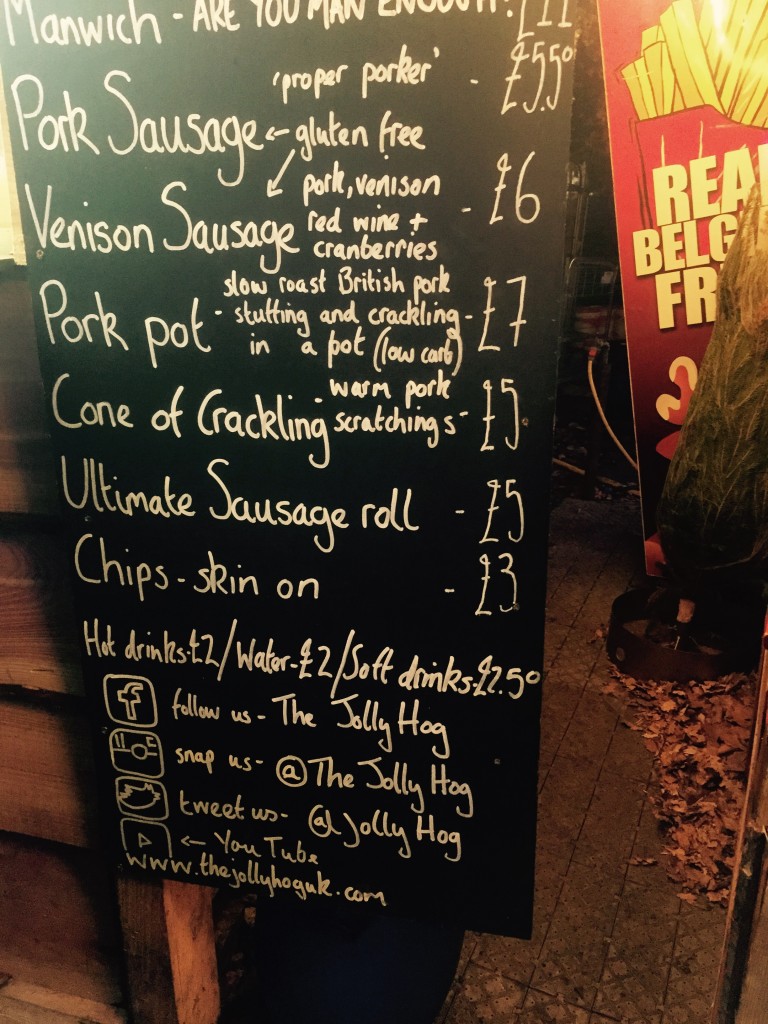 Manwich - ARE YOU MAN ENOUGH? £11
'proper porker' - £5.50
Pork Sausage ← gluten free
Venison Sausage pork, venison red wine + cranberries - £6
Pork pot - slow roast British pork stuffing and crackling in a pot (low carb) - £7
Cone of Crackling - warm pork scratchings - £5
Ultimate Sausage roll - £5
Chips - skin on - £3
Hot drinks-£2/Water-£2/Soft drinks-£2.50
follow us - The Jolly Hog
snap us - @The Jolly Hog
tweet us - @Jolly Hog
← You Tube
www.thejollyhoguk.com
REA
BELG
FR